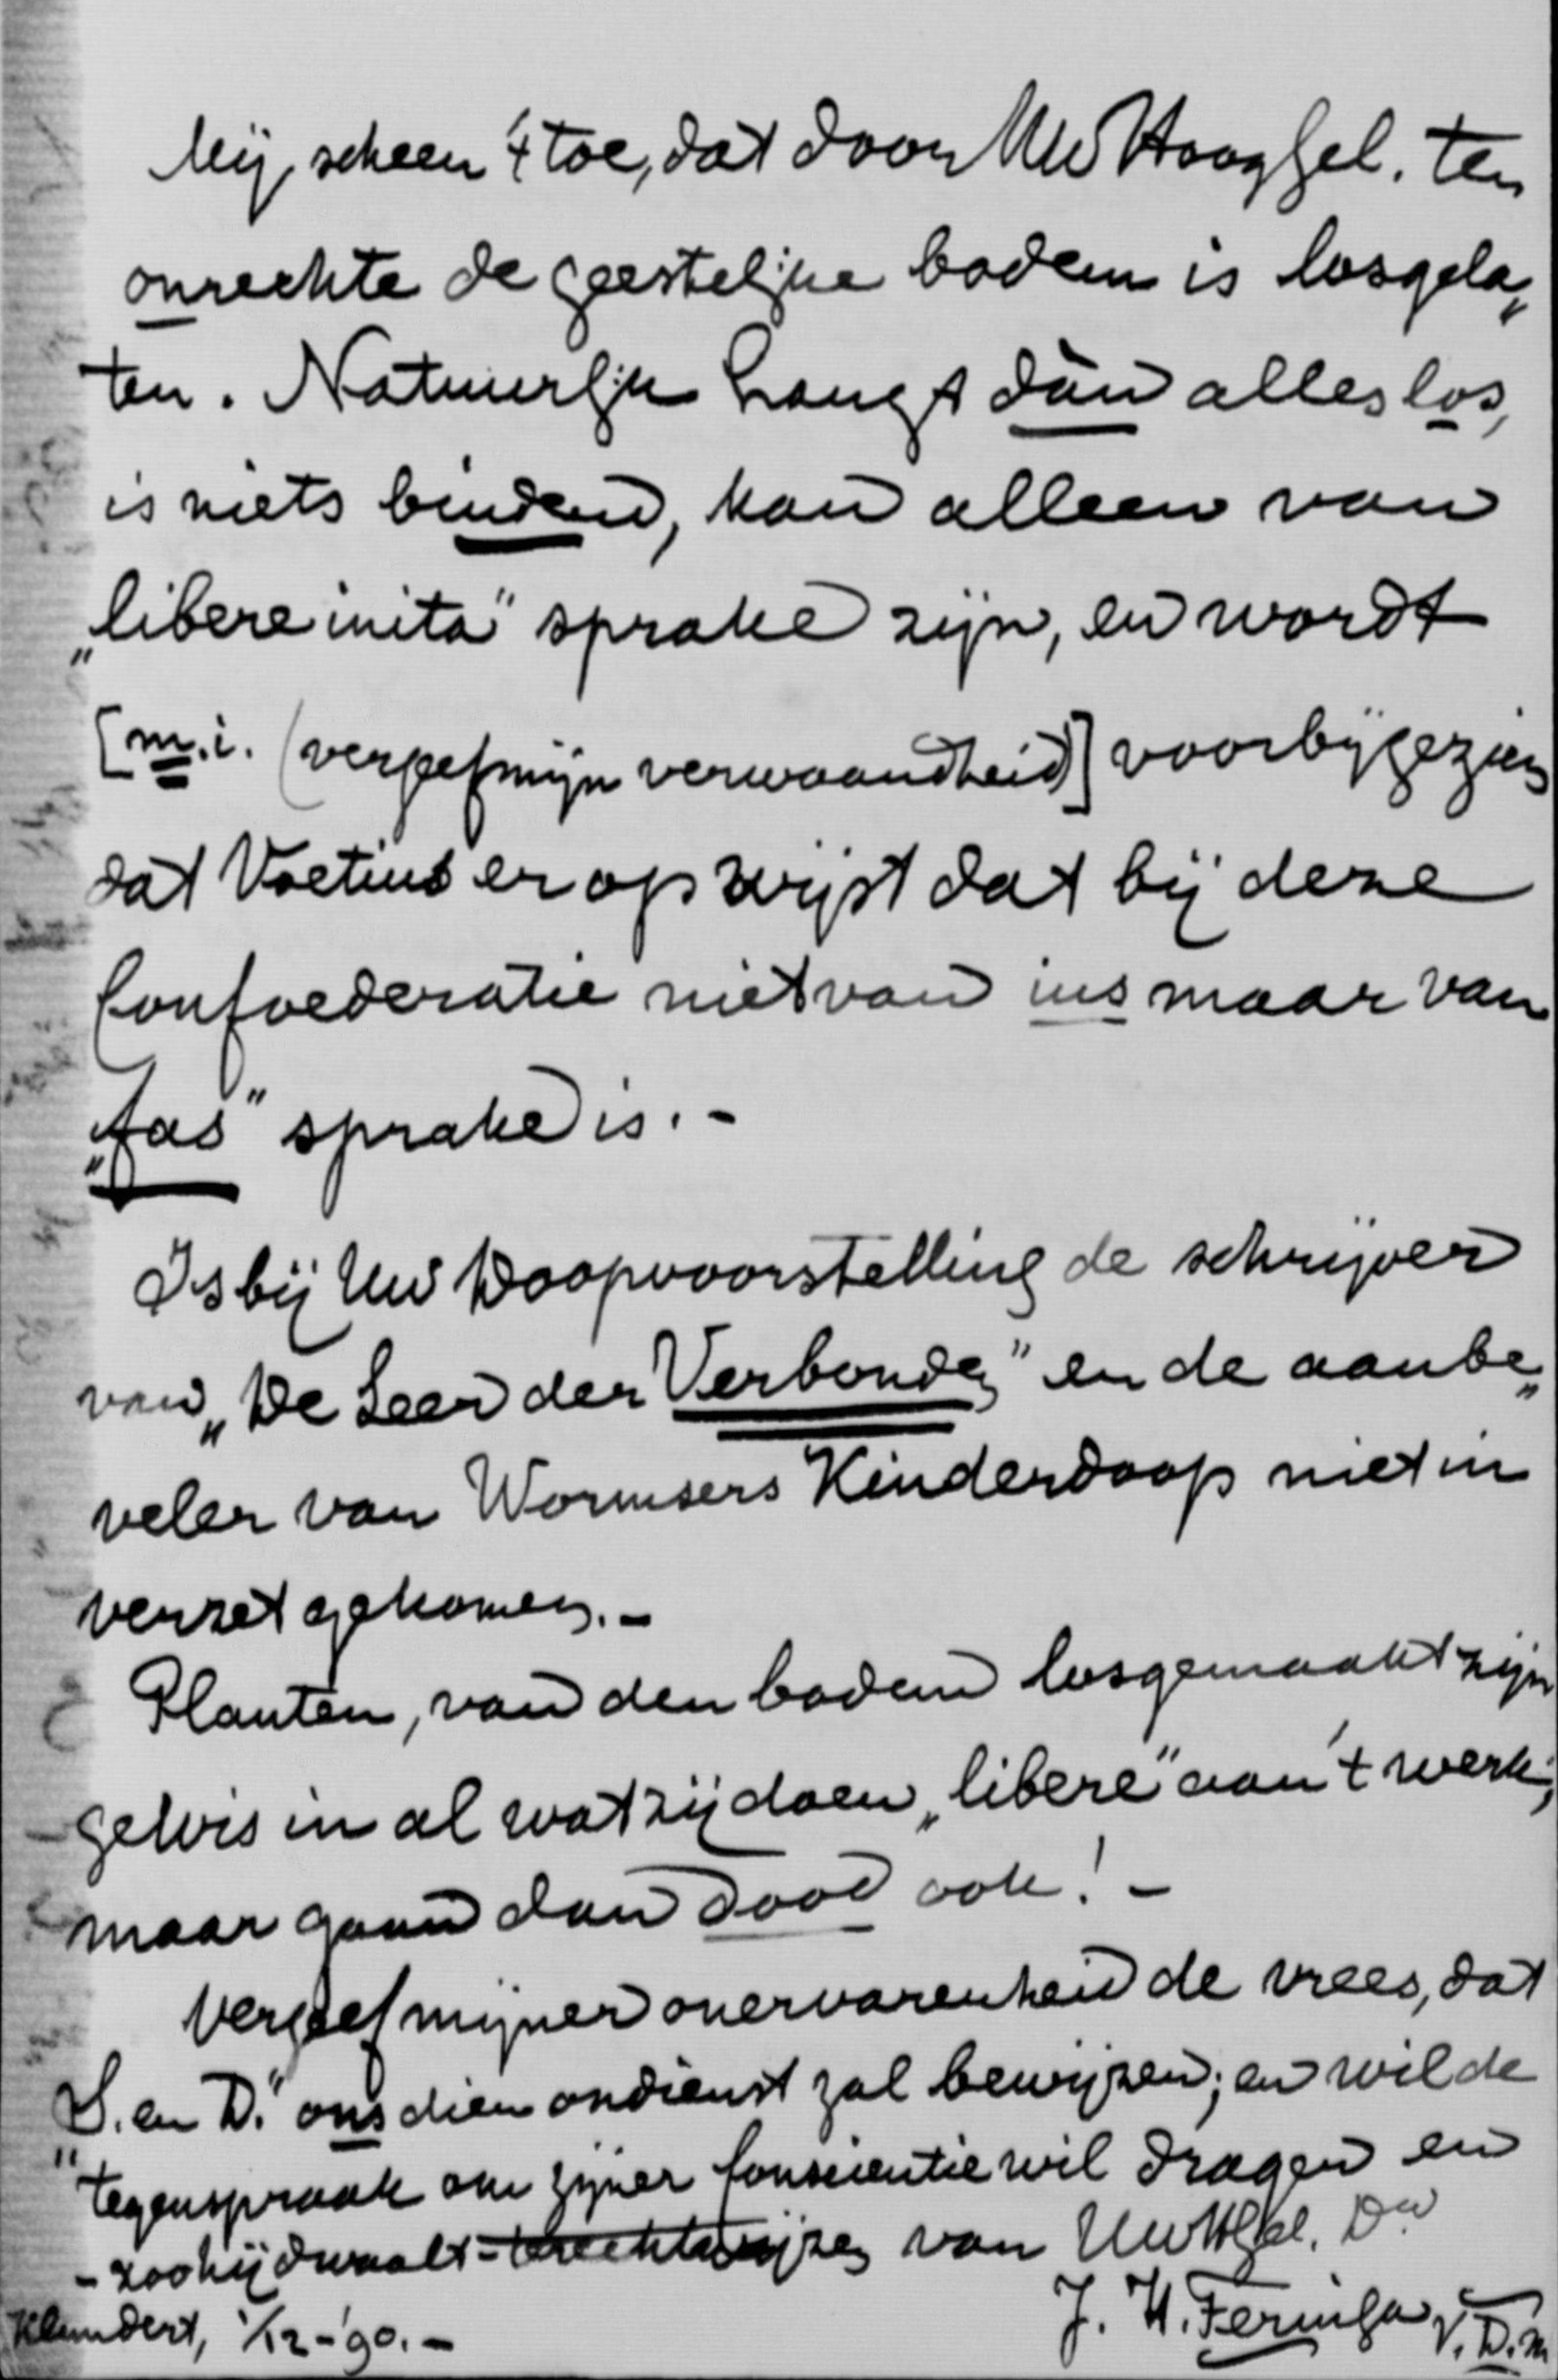 Mij, scheen 't toe, dat door Uw HoogGel. ten
onrechte de geestelijke bodem is losgela„
ten. Natuurlijk hangt dàn alles los,
is niets bindend, kan alleen van
„libere inita" sprake zijn, en wordt
[m.i. (vergeef mijn verwaandheid)] voorbijgezien
dat Voetius er op wijst dat bij deze
Confoederatie niet van ius maar van
„fas" sprake is. -
Is bij Uw Doopvoorstelling de schrijver
van „De Leer der Verbonden" en de aanbe„
veler van Wormsers Kinderdoop niet in
verzet gekomen. -
Planten, van den bodem losgemaakt zijn
gewis in al wat zij doen „libere" aan 't werk;
maar gaan dan dood ook! -
Vergeef mijner onervarenheid de vrees, dat
„S. en D." ons dien ondienst zal bewijzen; en wil de
tegenspraak om zijner conscientie wil dragen en
- zoo hij dwaalt - terechtwijzen van UwHGel. Dw
J. H. Feringa V.D.M
Klundert, 1/12 - '90. -